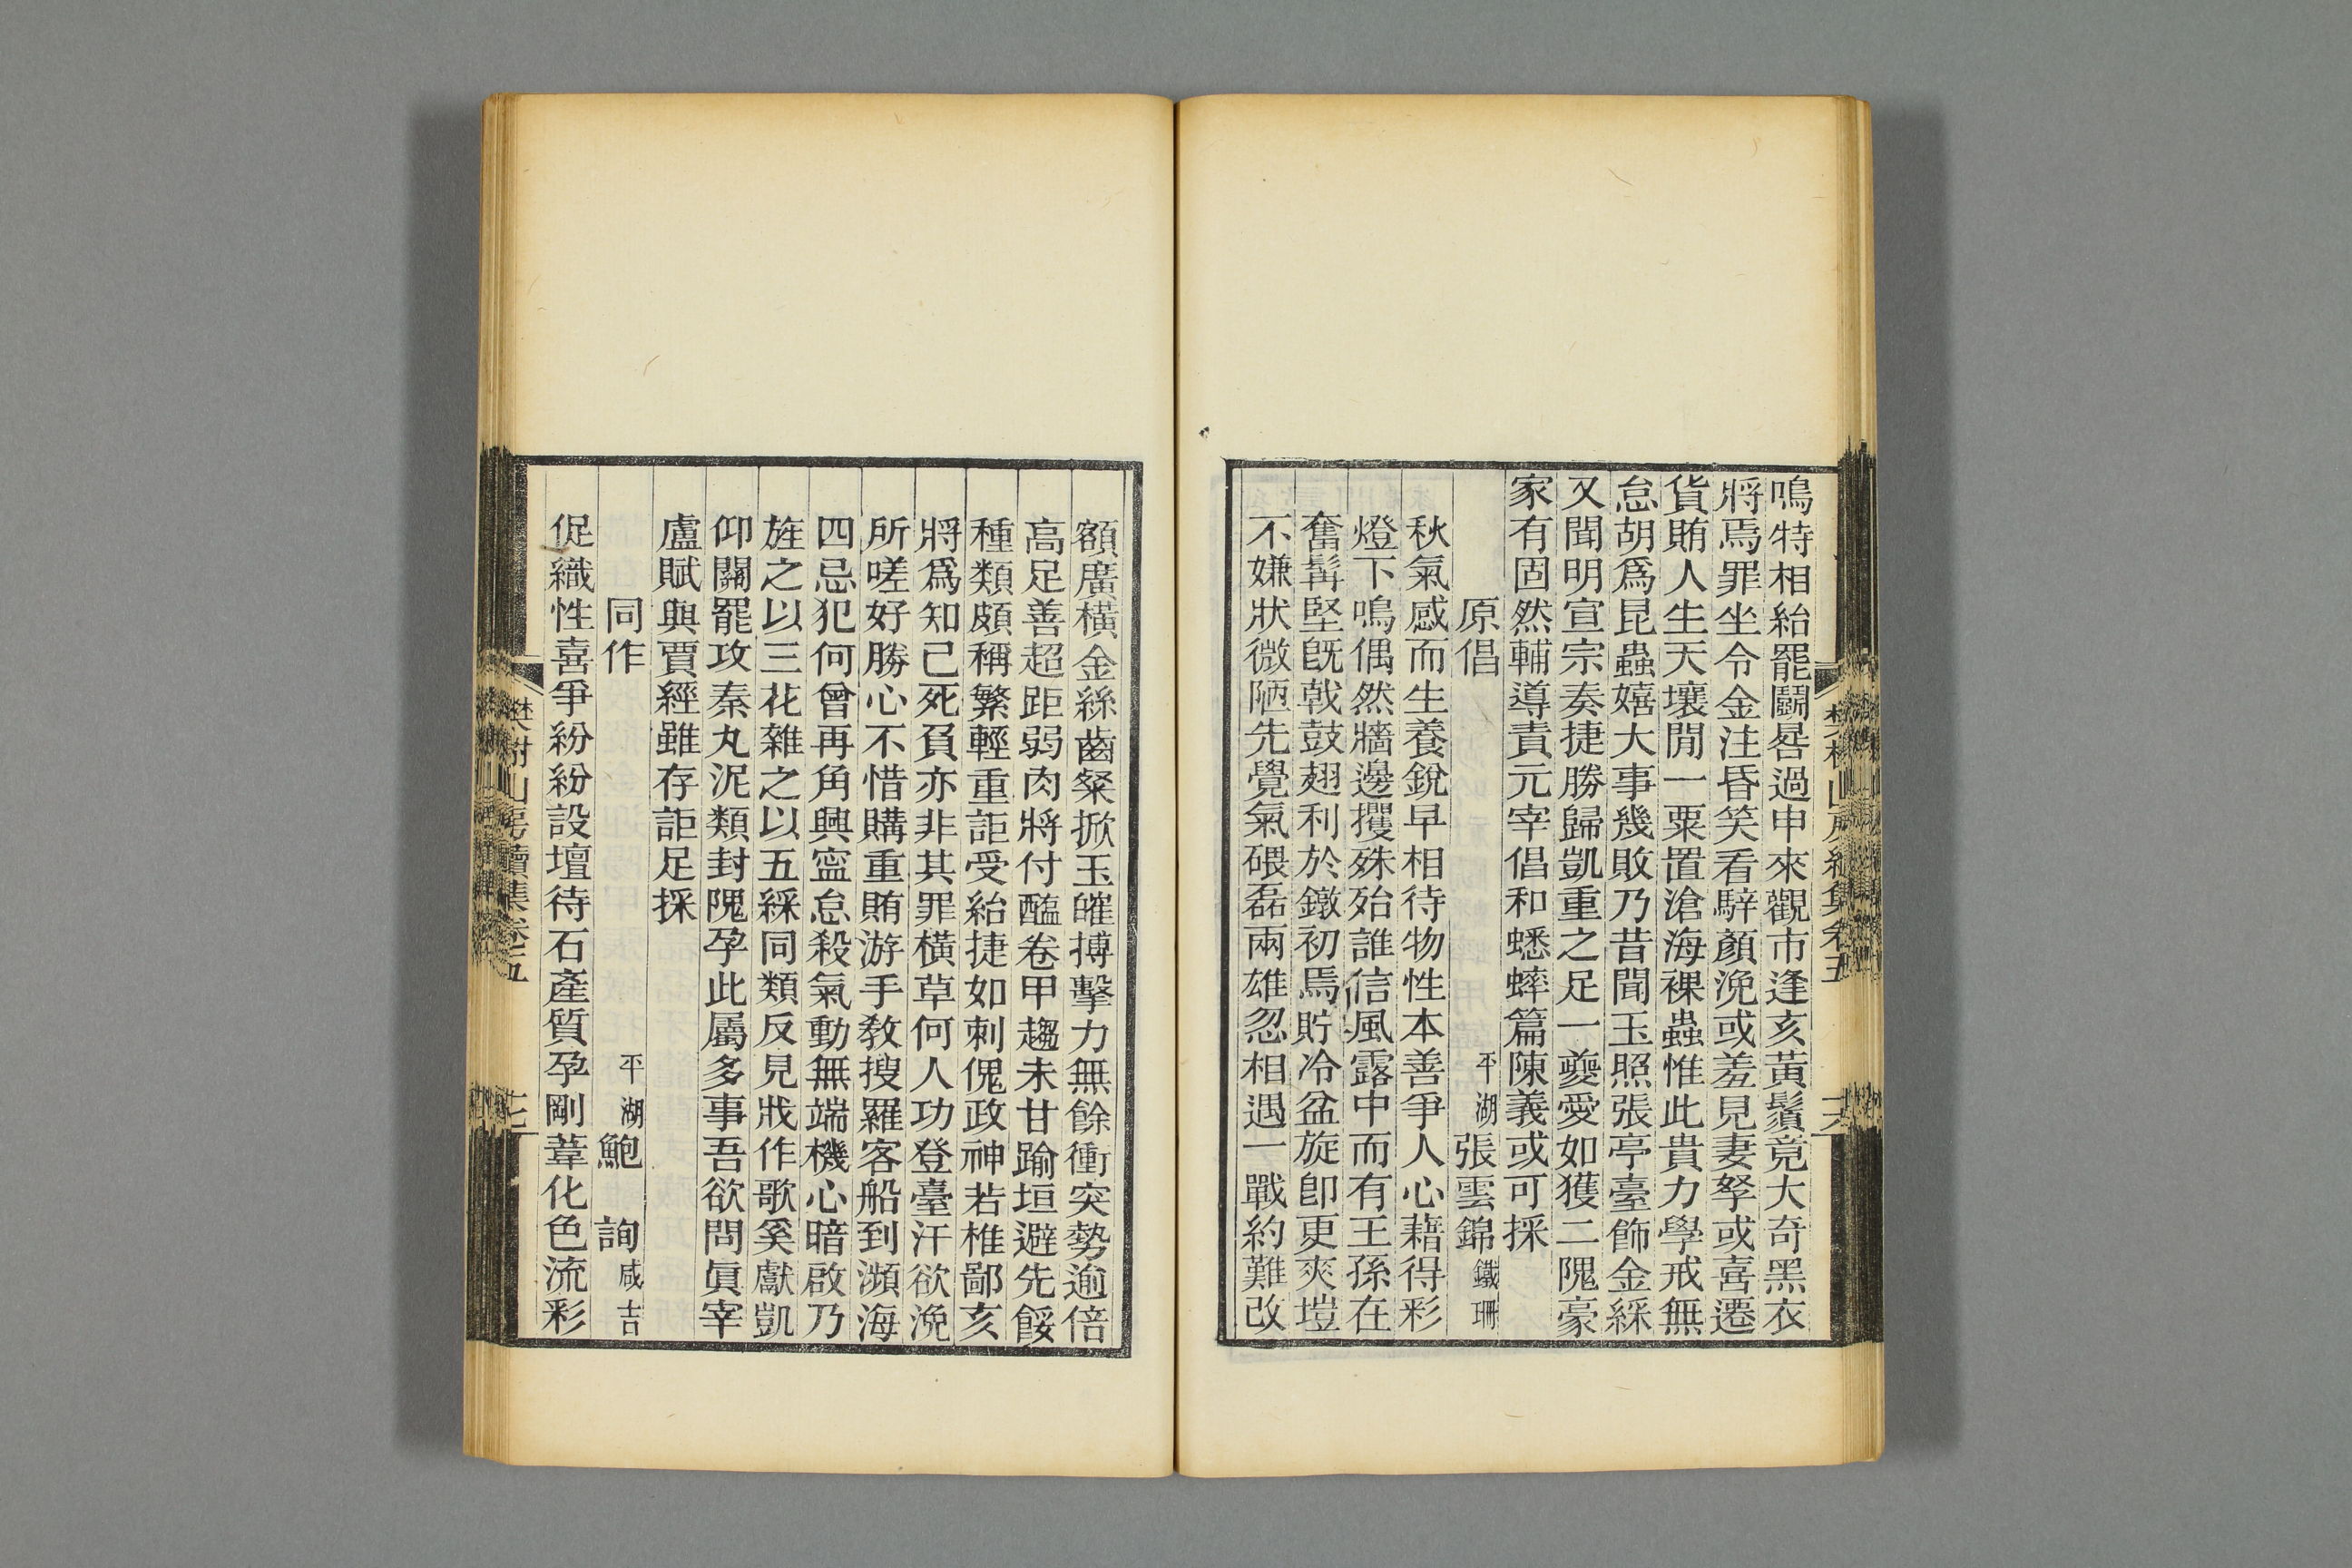 鳴特相紿罷鬭晷過申來觀市逢亥黃鬚竟大奇黑衣
將焉罪坐令金注昏笑看騂顏浼或羞見妻孥或喜遷
貨賄人生天壤閒一粟置滄海裸蟲惟此貴力學戒無
怠胡爲昆蟲嬉大事幾敗乃昔聞玉照張亭臺飾金綵
又聞明宣宗奏捷勝歸凱重之足一夔愛如獲二隗豪
家有固然輔導責元宰倡和蟋蟀篇陳義或可採
原倡 平湖張雲錦鐵珊
秋氣感而生養銳早相待物性本善爭人心藉得彩
燈下鳴偶然牆邊攫殊殆誰信風露中而有王孫在
奮髯堅旣戟鼓翅利於鐓初焉貯冷盆旋卽更爽塏
不嫌狀微陋先覺氣碨磊兩雄忽相遇一戰約難改
樊榭山房續集卷五 十六
額廣橫金絲齒粲掀玉皠搏擊力無餘衝突勢逾倍
高足善超距弱肉將付醢卷甲趨未甘踰垣避先餒
種類頗稱繁輕重詎受紿捷如刺傀政神若椎鄙亥
將爲知己死頁亦非其罪橫草何人功登臺汗欲浼
所嗟好勝心不惜購重賄游手教搜羅客船到瀕海
四忌犯何曾再角興寍怠殺氣動無端機心暗啟乃
旌之以三花雜之以五綵同類反見戕作歌奚獻凱
仰關罷攻秦丸泥類封隗孕此屬多事吾欲問眞宰
盧賦與賈經雖存詎足採
同作 平湖鮑詢咸吉
促織性喜爭紛紛設壇待石產質孕剛葦化色流彩
樊榭山房續集卷五 十七